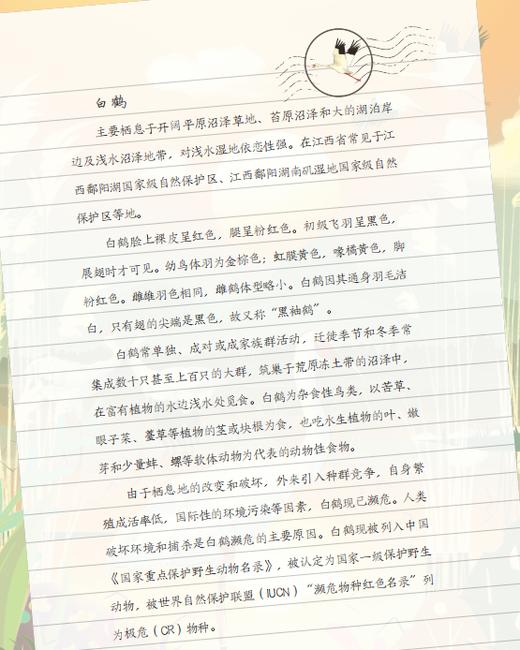 白鹤
主要栖息于开阔平原沼泽草地、苔原沼泽和大的湖泊岸
边及浅水沼泽地带，对浅水湿地依恋性强。在江西省常见于江
西鄱阳湖国家级自然保护区、江西鄱阳湖南矶湿地国家级自然
保护区等地。
白鹤脸上裸皮呈红色，腿呈粉红色。初级飞羽呈黑色，
展翅时才可见。幼鸟体羽为金棕色；虹膜黄色，喙橘黄色，脚
粉红色。雌雄羽色相同，雌鹤体型略小。白鹤因其通身羽毛洁
白，只有翅的尖端是黑色，故又称“黑袖鹤”。
白鹤常单独、成对或成家族群活动，迁徙季节和冬季常
集成数十只甚至上百只的大群，筑巢于荒原冻土带的沼泽中，
在富有植物的水边浅水处觅食。白鹤为杂食性鸟类，以苦草、
眼子菜、薹草等植物的茎或块根为食，也吃水生植物的叶、嫩
芽和少量蚌、螺等软体动物为代表的动物性食物。
由于栖息地的改变和破坏，外来引入种群竞争，自身繁
殖成活率低，国际性的环境污染等因素，白鹤现已濒危。人类
破坏环境和捕杀是白鹤濒危的主要原因。白鹤现被列入中国
《国家重点保护野生动物名录》，被认定为国家一级保护野生
动物，被世界自然保护联盟（IUCN）“濒危物种红色名录”列
为极危（CR）物种。